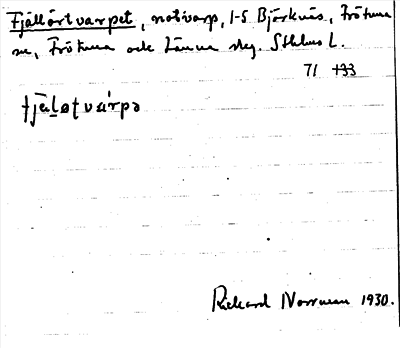 Fjällörtvarpet, notvarp, 1-5 Björknäs, Frötuna
sn, Frötuna och Länna skg. Sthlms L.
71 133
fjälotvárpə
Rickard Norrman 1930.